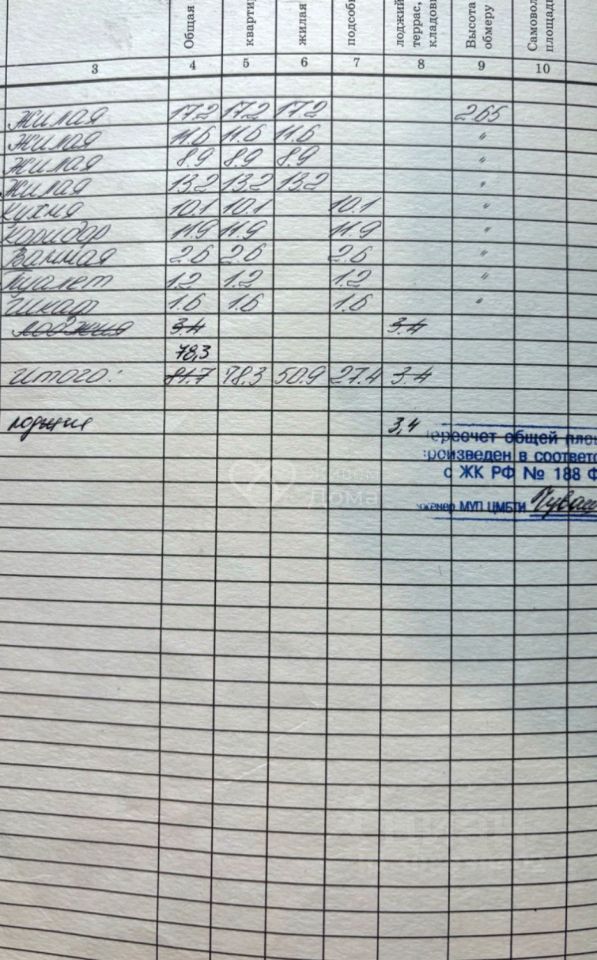 Общая
кварти
жилая
подсоб
лоджий
террас,
кладов
Высота
обмеру
Самовол
площадь
3 4 5 6 7 8 9 10
жилая 17.2 17.2 17.2 2.65
жилая 11.6 11.6 11.6 "
жилая 8.9 8.9 8.9 "
жилая 13.2 13.2 13.2 "
кухня 10.1 10.1 10.1 "
коридор 11.9 11.9 11.9 "
Ванная 2.6 2.6 2.6 "
Туалет 1.2 1.2 1.2 "
Шкаф 1.6 1.6 1.6 "
лоджия 3.4 3.4
78,3
итого: 81.7 78.3 50.9 27.4 3.4
лоджия 3,4
ересчет общей пло
роизведен в соответс
с ЖК РФ № 188 Ф
женер МУП ЦМБТИ
Дома